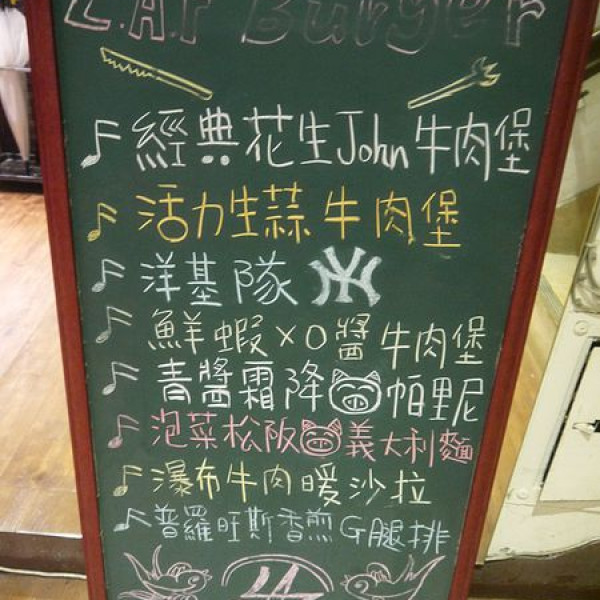 Z.A.P Burger
經典花生John牛肉堡
活力生蒜牛肉堡
洋基隊 NY
鮮蝦XO醬牛肉堡
青醬霜降帕里尼
泡菜松阪義大利麵
瀑布牛肉暖沙拉
普羅旺斯香煎G腿排